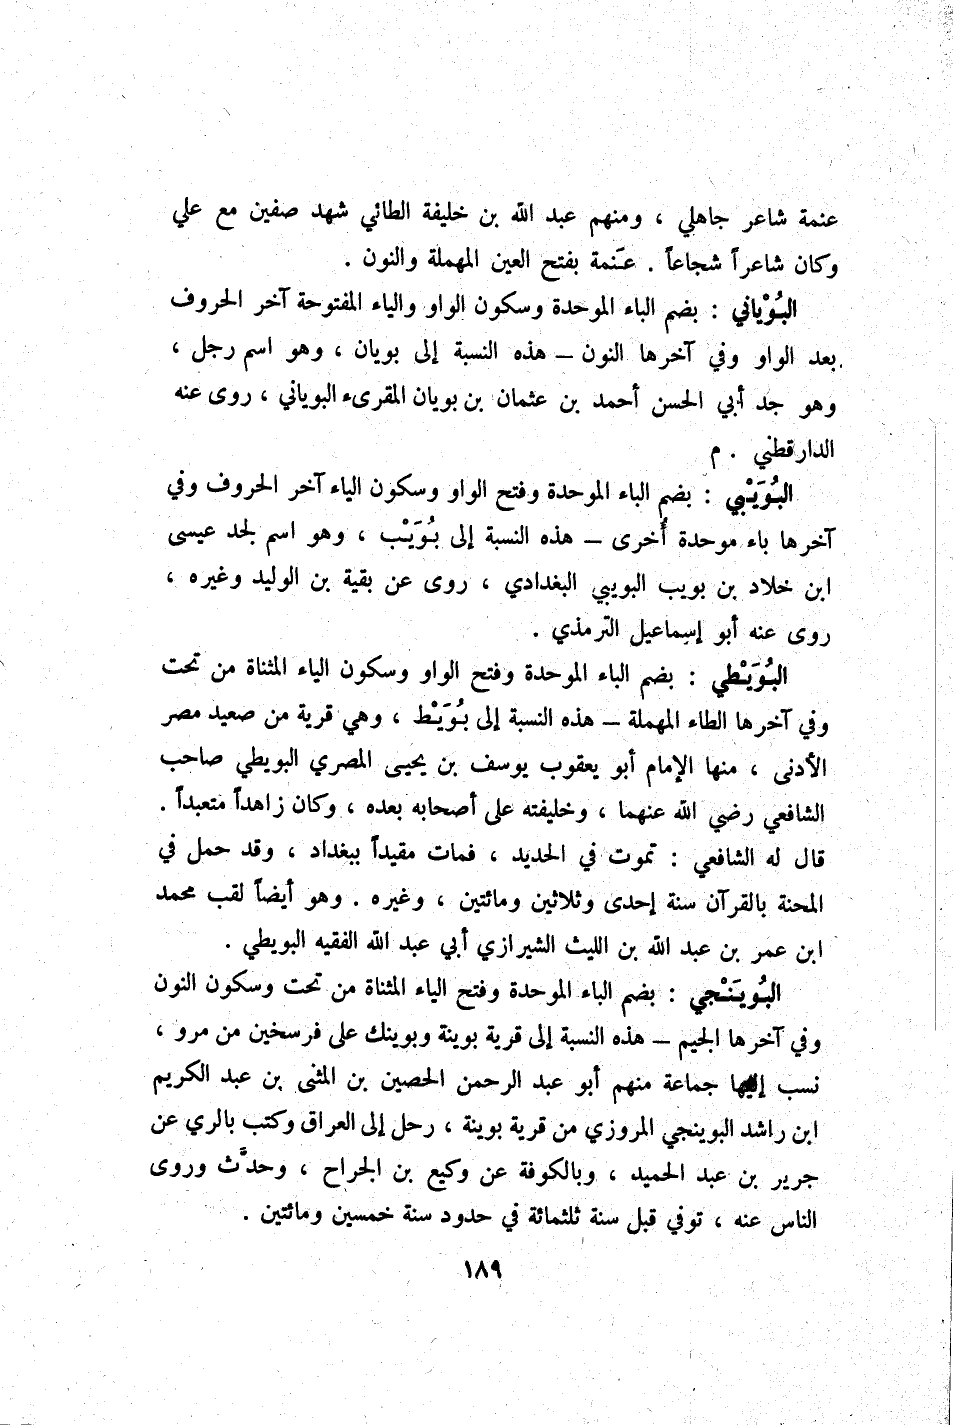 عنمة شاعر جاهلي ، ومنهم عبد الله بن خليفة الطائي شهد صفين مع علي
وكان شاعراً شجاعاً . عَنمة بفتح العين المهملة والنون .
البُوْياني : بضم الباء الموحدة وسكون الواو والياء المفتوحة آخر الحروف
بعد الواو وفي آخرها النون – هذه النسبة إلى بويان ، وهو اسم رجل ،
وهو جد أبي الحسن أحمد بن عثمان بن بويان المقرىء البوياني ، روى عنه
الدارقطني . م
البُوَيْبي : بضم الباء الموحدة وفتح الواو وسكون الياء آخر الحروف وفي
آخرها باء موحدة أُخرى – هذه النسبة إلى بُوَيْب ، وهو اسم لجد عيسى
ابن خلاد بن بويب البويبي البغدادي ، روى عن بقية بن الوليد وغيره ،
روى عنه أبو إسماعيل الترمذي .
البُوَيْطي : بضم الباء الموحدة وفتح الواو وسكون الياء المثناة من تحت
وفي آخرها الطاء المهملة – هذه النسبة إلى بُوَيْط ، وهي قرية من صعيد مصر
الأدنى ، منها الإمام أبو يعقوب يوسف بن يحيى المصري البويطي صاحب
الشافعي رضي الله عنهما ، وخليفته على أصحابه بعده ، وكان زاهداً متعبداً .
قال له الشافعي : تموت في الحديد ، فمات مقيداً ببغداد ، وقد حمل في
المحنة بالقرآن سنة إحدى وثلاثين ومائتين ، وغيره . وهو أيضاً لقب محمد
ابن عمر بن عبد الله بن الليث الشيرازي أبي عبد الله الفقيه البويطي .
البُويَنْجي : بضم الباء الموحدة وفتح الياء المثناة من تحت وسكون النون
وفي آخرها الجيم – هذه النسبة إلى قرية بوينة وبوينك على فرسخين من مرو ،
نسب إليها جماعة منهم أبو عبد الرحمن الحصين بن المثنى بن عبد الكريم
ابن راشد البوينجي المروزي من قرية بوينة ، رحل إلى العراق وكتب بالري عن
جرير بن عبد الحميد ، وبالكوفة عن وكيع بن الجراح ، وحدَّث وروى
الناس عنه ، توفي قبل سنة ثلثمائة في حدود سنة خمسين ومائتين .
١٨٩